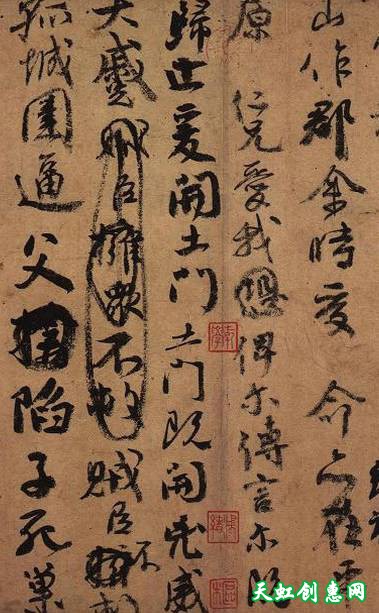 山作郡余時受命亦在平
原仁兄愛我恐俾尔傳言尔既
歸止爰開土門土門既開凶威
大蹙賊臣擁衆不救賊臣不
孤城圍逼父陷子死巢
天虹创意网